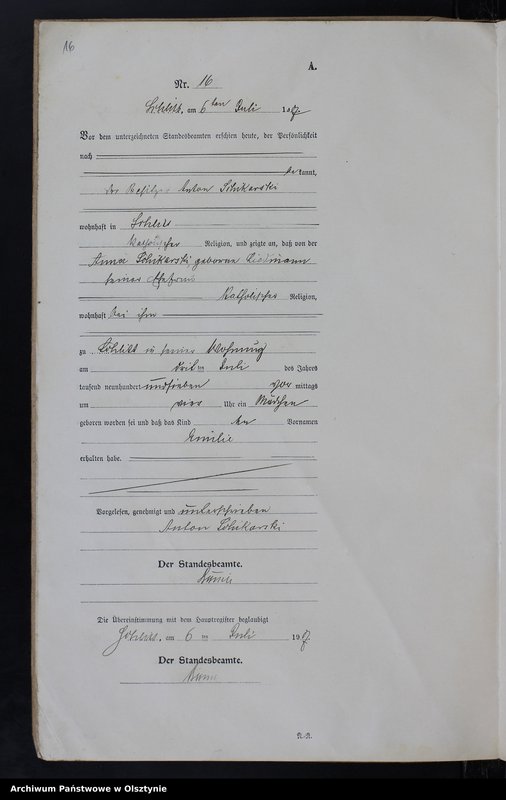 16
A.
Nr. 16
am 6ten Juli 1907
Vor dem unterzeichneten Standesbeamten erschien heute, der Persönlichkeit
nach
be kannt,
der Besitzer Anton
wohnhaft in
katholischer Religion, und zeigte an, daß von der
Anna geborene
seiner Ehefrau
katholischer Religion,
wohnhaft bei ihm
zu in seiner Wohnung
am Juli des Jahres
tausend neunhundert und sieben vor mittags
um vier Uhr ein Mädchen
geboren worden sei und daß das Kind den Vornamen
Emilie
erhalten habe.
Vorgelesen, genehmigt und unterschrieben
Anton
Der Standesbeamte.
Die Übereinstimmung mit dem Hauptregister beglaubigt
am 6 ten Juli 1907.
Der Standesbeamte.
A.-N.
Archiwum Państwowe w Olsztynie